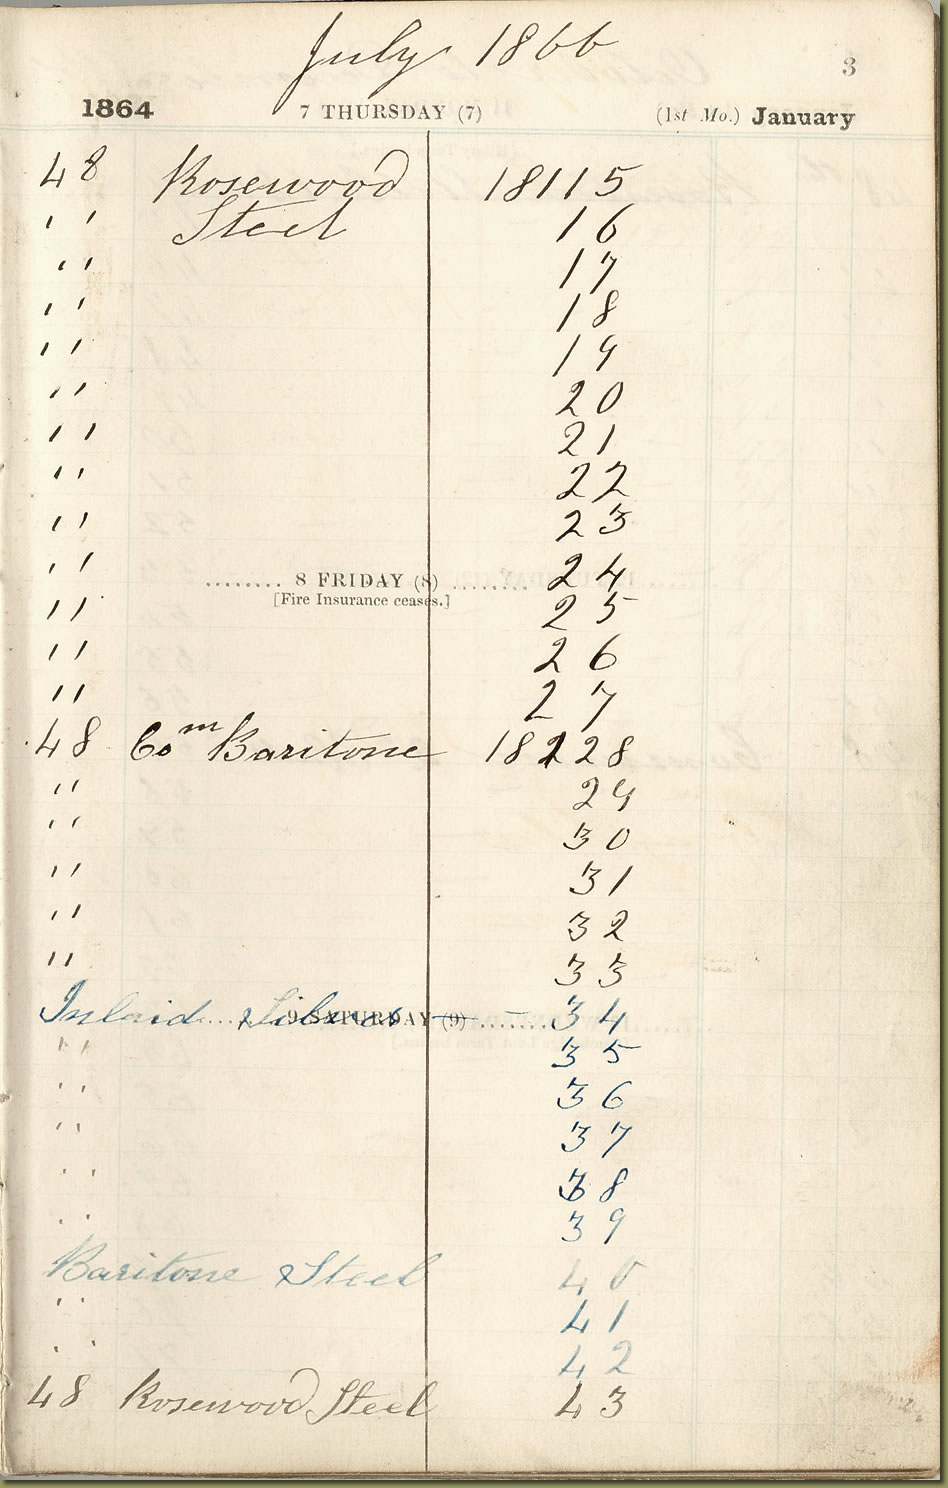 July 1866
3
1864 7 THURSDAY (7) (1st Mo.) January
48 Rosewood 18115
" Steel 16
" 17
" 18
" 19
" 20
" 21
" 22
" 23
" 24
........ 8 FRIDAY (8) ........
[Fire Insurance ceases.]
" 25
" 26
" 27
48 Com Baritone 18228
" 29
" 30
" 31
" 32
" 33
Inlaid & Silver 34
9 SATURDAY (9) .......
" 35
" 36
" 37
" 38
" 39
Baritone & Steel 40
" 41
" 42
48 Rosewood Steel 43